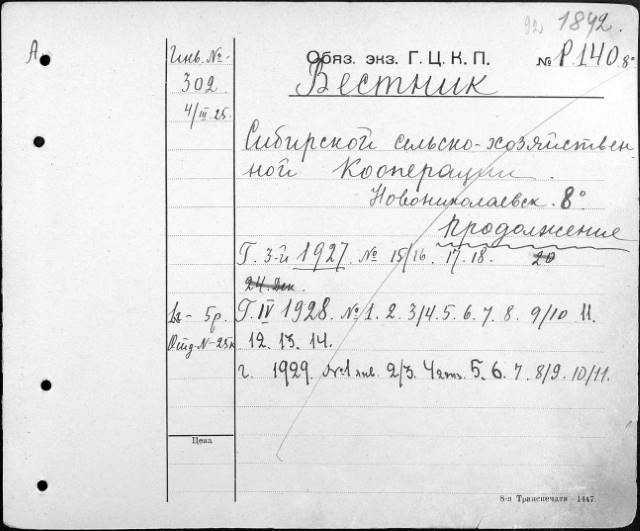 92 1842.
А.
Инв. №
302
4/III 25.
Обяз. экз. Г. Ц. К. П. № Р.140 8°
Вестник
Сибирской сельско-хозяйствен
ной Кооперации.
Новониколаевск. 8°
продолжение
Г. 3-й 1927. № 15/16. 17. 18. 20
24.
5 р. Г. IV 1928. № 1. 2. 3/4. 5. 6. 7. 8. 9/10 11.
Отд. № 25к 12. 13. 14.
г. 1929. №1 янв. 2/3. 4 5. 6. 7. 8/9. 10/11.
Цена
8-я Транспечати - 1447.